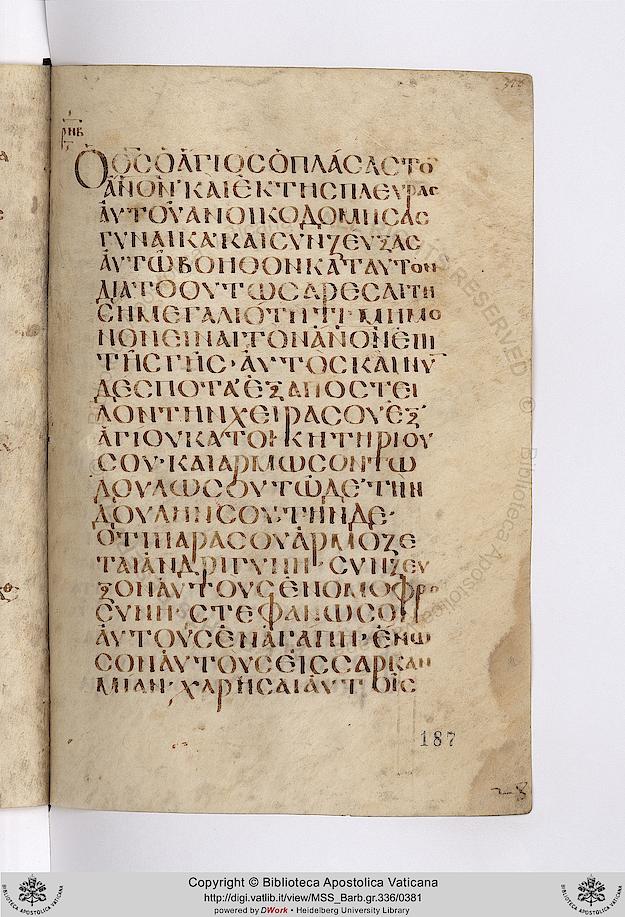 ρ̅ν̅β̅
Ὁ Θ̅Σ̅ Ὁ ἍΓΙΟΣ Ὁ ΠΛΆΣΑΣ ΤΟ
ἈΝ̅ΟΝ· ΚΑΙ ἘΚ ΤΗΣ ΠΛΕΥΡΑΣ
ἈΥΤΟΥ ΑΝΟΙΚΟΔΟΜΗΣΑΣ
ΓΥΝΑΙΚΑ· ΚΑΙ ΣΥΝΖΕΥΞΑΣ
ἈΥΤΩ ΒΟΗΘΟΝ ΚΑΤ ΑΥΤΟΝ
ΔΙΑ ΤΟ ΟΥΤΩΣ ΑΡΕΣΑΙ ΤΗ
ΣΗ ΜΕΓΑΛΙΟΤΗΤΙ· ΜΗ ΜΟ
ΝΟΝ ΕΙΝΑΙ ΤΟΝ ἈΝ̅ΟΝ ΕΠΙ
ΤΗΣ ΓΗΣ· ἈΥΤΟΣ ΚΑΙ ΝΥ̅
ΔΕΣΠΟΤΑ ἘΞΑΠΟΣΤΕΙ
ΛΟΝ ΤΗΝ ΧΕΙΡΑ ΣΟΥ ἘΞ
ἉΓΙΟΥ ΚΑΤΟΙΚΗΤΗΡΙΟΥ
ΣΟΥ· ΚΑΙ ΑΡΜΩΣΟΝ ΤΩ
ΔΟΥΛΩ ΣΟΥ ΤΩΔΕ· ΤΗΝ
ΔΟΥΛΗΝ ΣΟΥ ΤΗΝΔΕ·
ΟΤΙ ΠΑΡΑ ΣΟΥ ἉΡΜΟΖΕ
ΤΑΙ ἈΝΔΡΙ ΓΥΝΗ· ΣΥΝΖΕΥ
ΞΟΝ ΑΥΤΟΥΣ ἘΝ ΟΜΟΦΡΟ
ΣΥΝΗ· ΣΤΕΦΑΝΩΣΟΝ
ἈΥΤΟΥΣ ἘΝ ἈΓΑΠΗ· ἙΝΩ
ΣΟΝ ἈΥΤΟΥΣ ΕΙΣ ΣΑΡΚΑΝ
ΜΙΑΝ· ΧΑΡΗΣΑΙ ἈΥΤΟΙΣ
187
Copyright © Biblioteca Apostolica Vaticana
http://digi.vatlib.it/view/MSS_Barb.gr.336/0381
powered by DWork • Heidelberg University Library